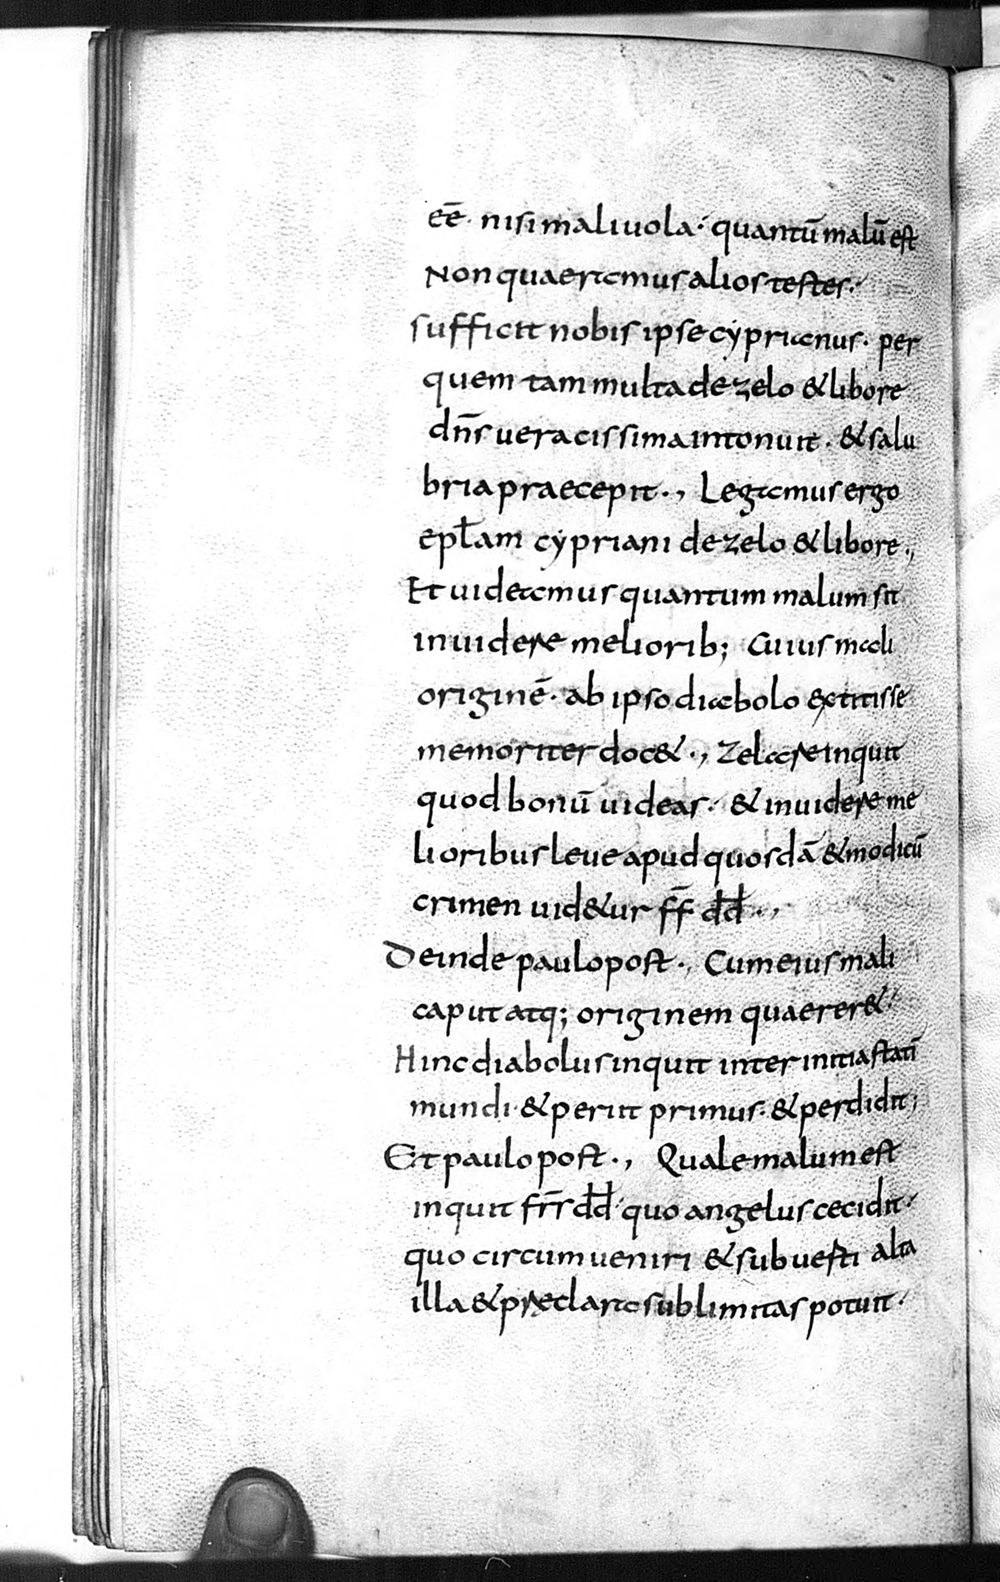 eē· nisi maliuola· quantū malū est
Non quaeramus alios testes·
sufficit nobis ipse cẏprianus· per
quem tam multa de zelo & libore
dn̄s ueracissima intonuit· & salu
bria praecepit·, Legamus ergo
epl̄am cẏpriani de zelo & libore·,
Et uideamus quantum malum sit
inuidere meliorib; Cuius mali
originē· ab ipso diabolo extitisse
memoriter doc&·, Zelare inquit
quod bonū uideas· & inuidere me
lioribus leue apud quosdā & modicū
crimen uid&ur ff̄ dd̄·,
Deinde paulo post·, Cum eius mali
caput atq; originem quaerer&·
Hinc diabolus inquit inter initia statī
mundi· & periit primus· & perdidit;
Et paulo post·, Quale malum est
inquit frr̄ dd̄· quo angelus cecidit·
quo circumueniri & subuesti alta
illa & preclara sublimitas potuit·